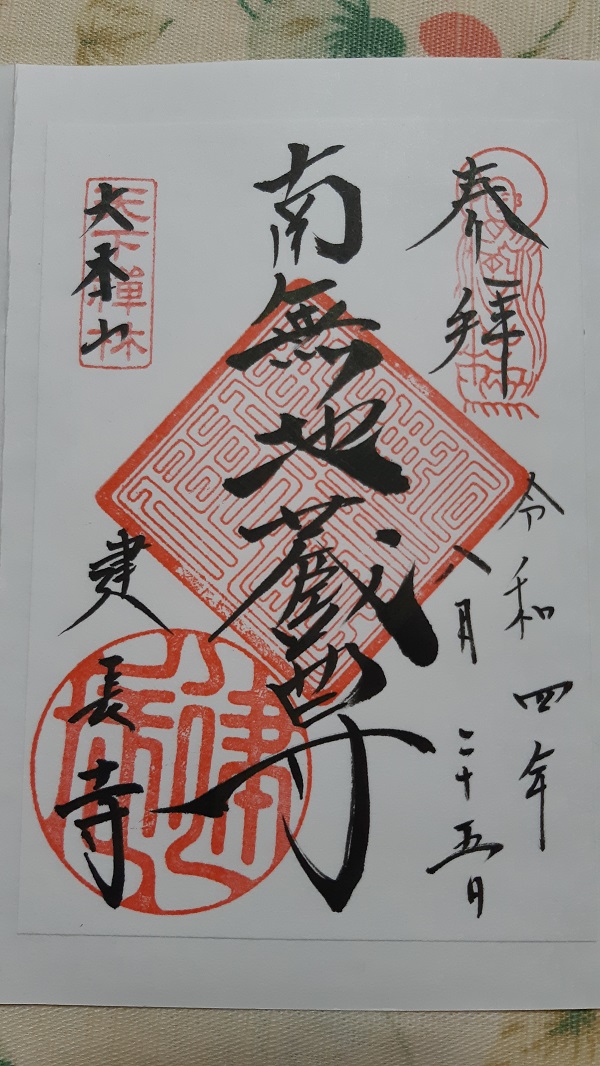 奉拝
令和四年
八月二十五日
南無地蔵尊
天下禅林
大本山
建長寺